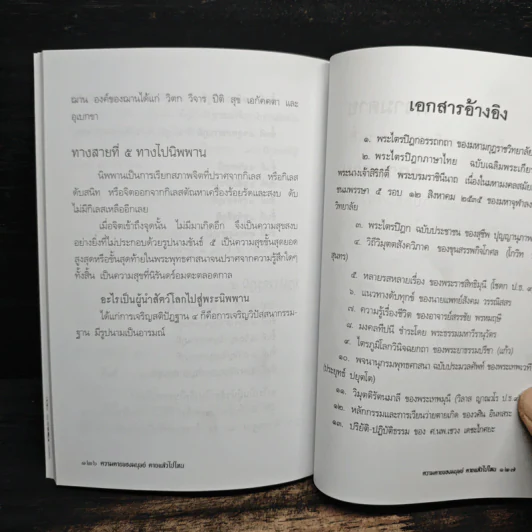 ฌาน องค์ของฌานได้แก่ วิตก วิจาร ปีติ สุข เอกัคคตา และ
อุเบกขา
ทางสายที่ ๕ ทางไปนิพพาน
นิพพานเป็นการเรียกสภาพจิตที่ปราศจากกิเลส หรือกิเลส
ดับสนิท หรือจิตออกจากกิเลสตัณหาเครื่องร้อยรัดและสงบ ดับ
ไม่มีกิเลสเหลืออีกเลย
เมื่อจิตเข้าถึงจุดนั้น ไม่มีมาเกิดอีก จึงเป็นความสุขสงบ
อย่างยิ่งที่ไม่ประกอบด้วยรูปนามขันธ์ ๕ เป็นความสุขขั้นสุดยอด
สูงสุดหรือขั้นสุดท้ายในพระพุทธศาสนาจนปราศจากความรู้สึกใดๆ
ทั้งสิ้น เป็นความสุขที่นิรันดร์อมตะตลอดกาล
อะไรเป็นผู้นำสัตว์โลกไปสู่พระนิพพาน
ได้แก่การเจริญสติปัฏฐาน ๔ ก็คือการเจริญวิปัสสนากรรม-
ฐาน มีรูปนามเป็นอารมณ์
๑๒๖ ความตายของมนุษย์ ตายแล้วไปไหน
เอกสารอ้างอิง
๑. พระไตรปิฎกอรรถกถา ของมหามกุฏราชวิทยาลัย
๒. พระไตรปิฎกภาษาไทย ฉบับเฉลิมพระเกียร
พระนางเจ้าสิริกิติ์ พระบรมราชินีนาถ เนื่องในมหามงคลสมัย
ชนมพรรษา ๕ รอบ ๑๒ สิงหาคม ๒๕๓๕ ของมหาจุฬาลง
วิทยาลัย
๓. พระไตรปิฎก ฉบับประชาชน ของสุชีพ ปุญญานุภาพ
๔. วิถีวิมุตตสังควิภาค ของขุนสรรพกิจโกศล (โกวิท
สุนทร)
๕. หลายรสหลายเรื่อง ของพระราชสิทธิมุนี (โชดก ป.ธ. ๙
๖. แนวทางดับทุกข์ ของนายแพทย์สังคม วรรณิสสร
๗. ความรู้เรื่องชีวิต ของอาจารย์สรรชัย พรหมฤษี
๘. มงคลทีปนี ชำระโดย พระธรรมมหาวีรานุวัตร
๙. ไตรภูมิโลกวินิจฉยกถา ของพระยาธรรมปรีชา (แก้ว)
๑๐. พจนานุกรมพุทธศาสนา ฉบับประมวลศัพท์ ของพระเทพเวที
(ประยุทธ์ ปยุตโต)
๑๑. วิมุตติรัตนมาลี ของพระเทพมุนี (วิลาศ ญาณวโร ป.ธ.๙
๑๒. หลักกรรมและการเวียนว่ายตายเกิด ของวศิน อินทสระ
๑๓. ปริยัติ-ปฏิบัติธรรม ของ
ความตายของมนุษย์ ตายแล้วไปไหน ๑๒๗